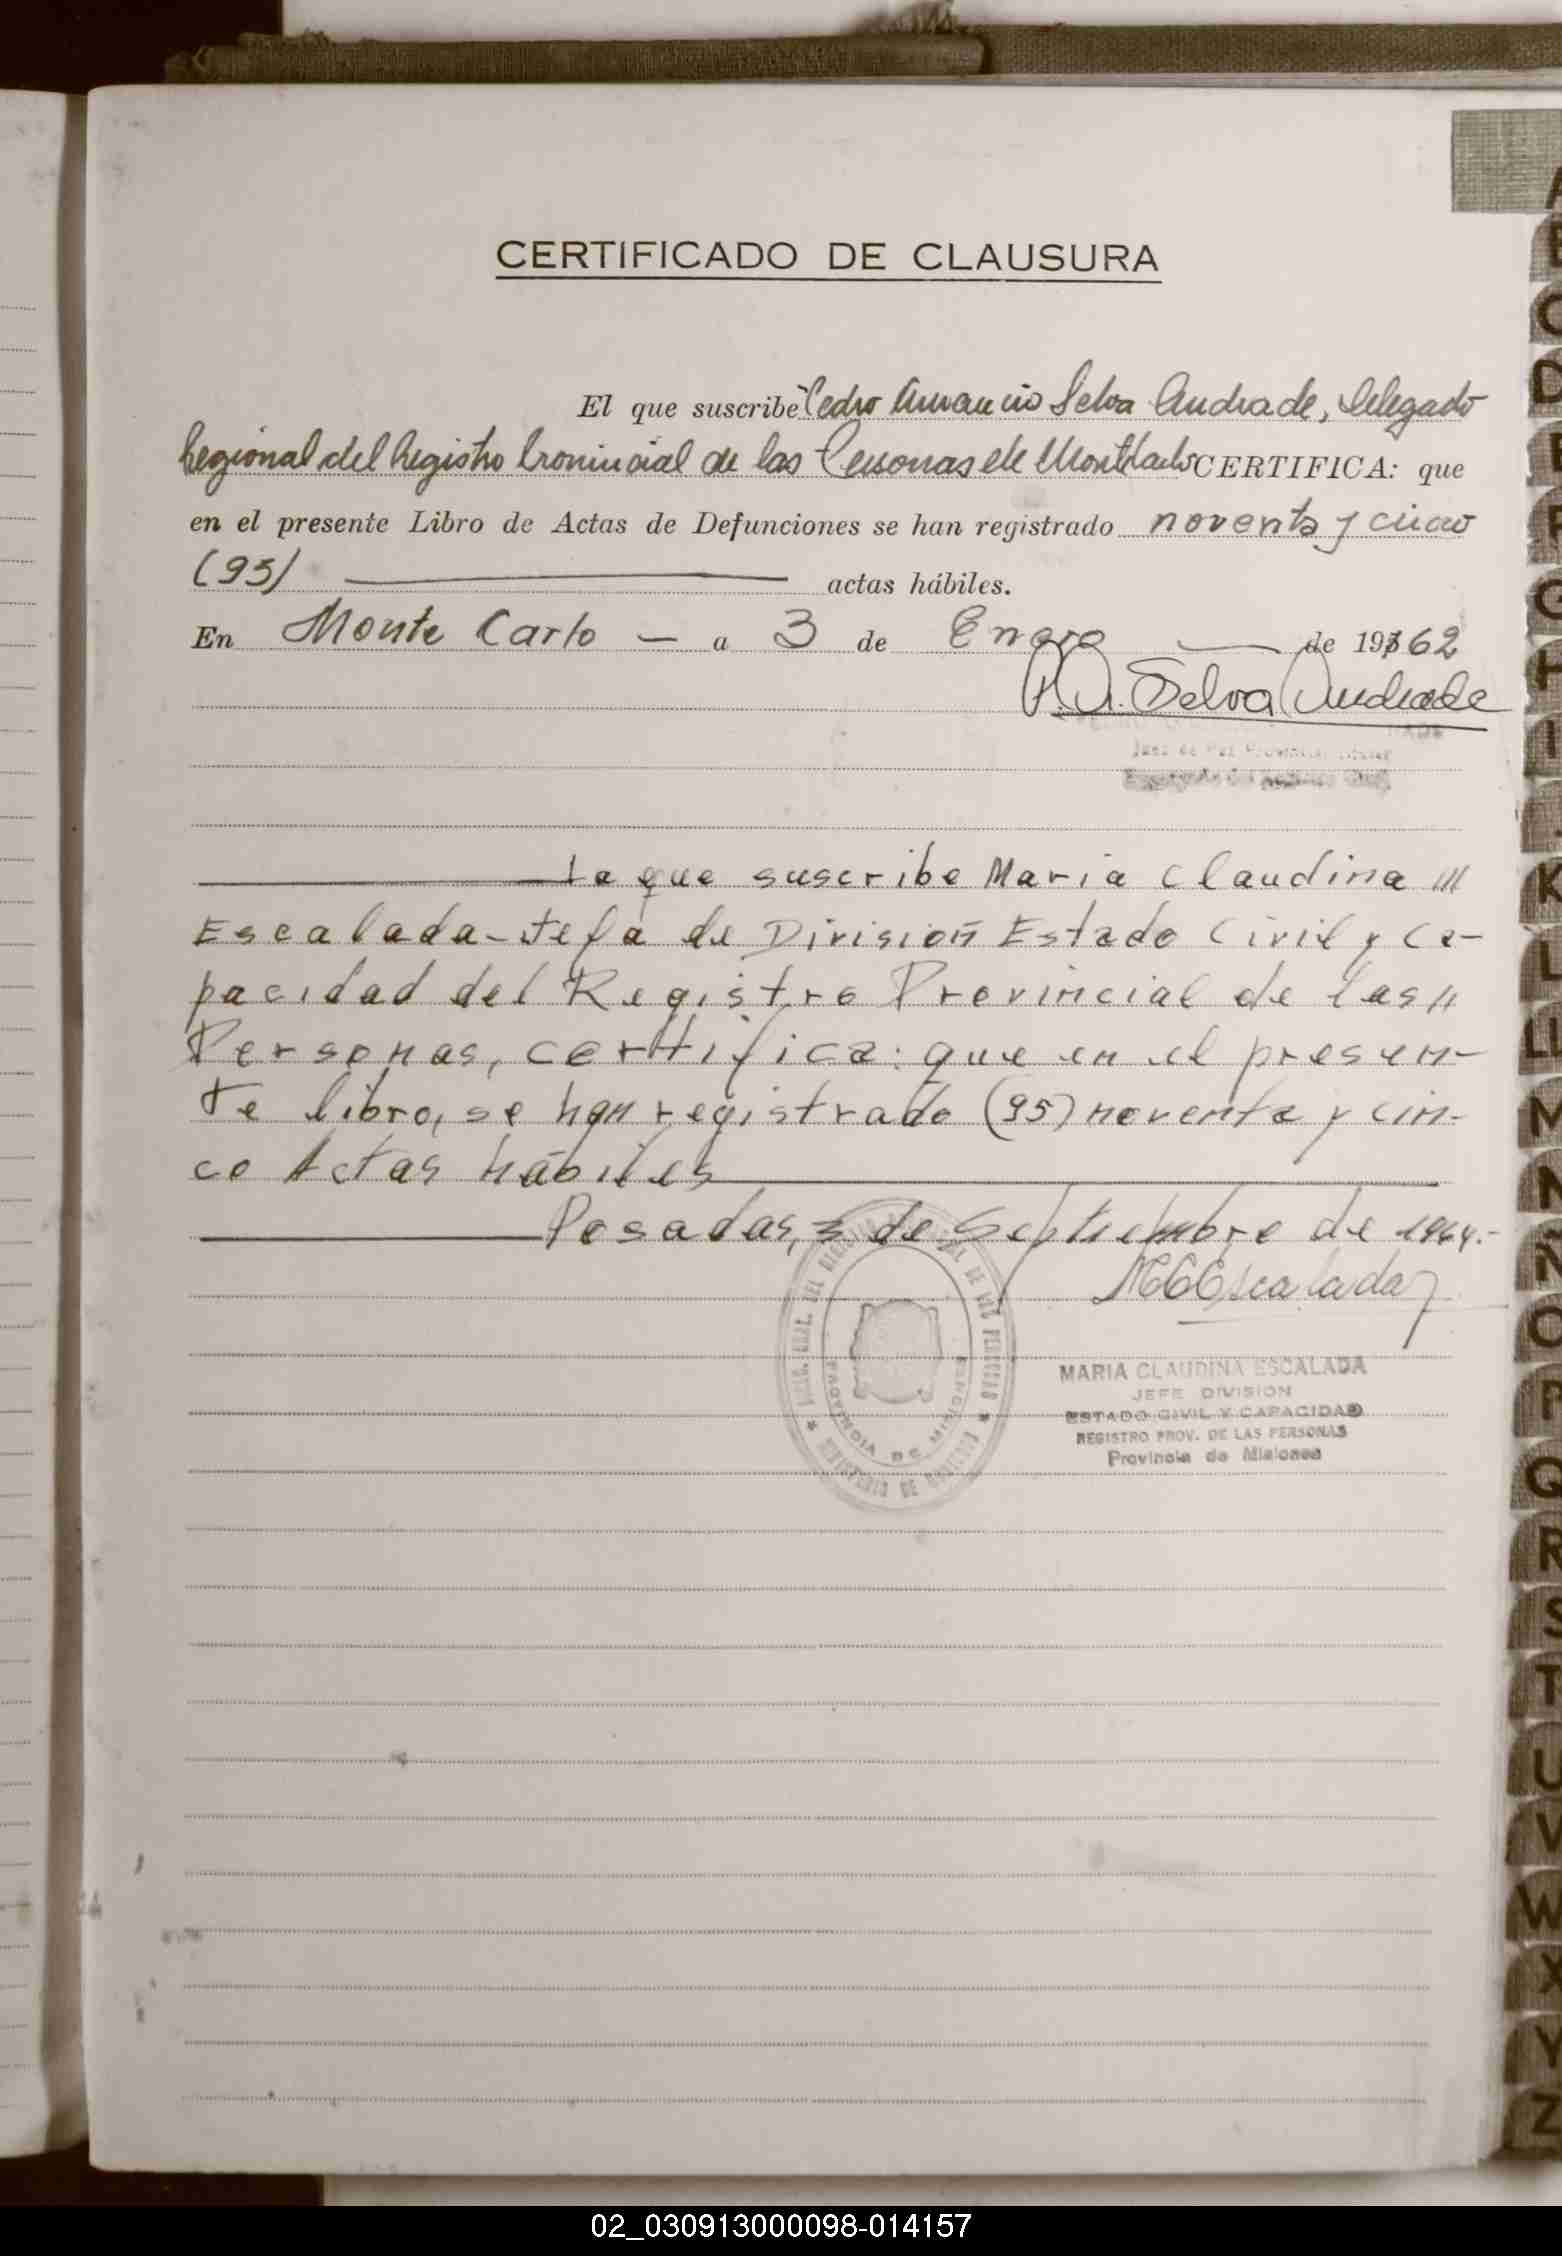 CERTIFICADO DE CLAUSURA
El que suscribe Pedro Amancio Selva Andrade, Delegado
Regional del Registro Provincial de las Personas de CERTIFICA: que
en el presente Libro de Actas de Defunciones se han registrado noventa y cinco
(95) actas hábiles.
En Monte Carlo — a 3 de Enero — de 1962
P. A. Selva Andrade
Juez de Paz
La que suscribe Maria Claudina
Escalada - Jefa de División Estado Civil y Ca-
pacidad del Registro Provincial de las
Personas, certifica: que en el presen-
te libro, se han registrado (95) noventa y cin-
co Actas hábiles
Posadas, 3 de Septiembre de 1964.-
MCEscalada
MARIA CLAUDINA ESCALADA
JEFE DIVISION
ESTADO CIVIL Y CAPACIDAD
REGISTRO PROV. DE LAS PERSONAS
Provincia de Misiones
PROVINCIA DE MISIONES
A
B
C
D
E
F
G
H
I
J
K
L
LL
M
N
Ñ
O
P
Q
R
S
T
U
V
W
X
Y
Z
02_030913000098-014157